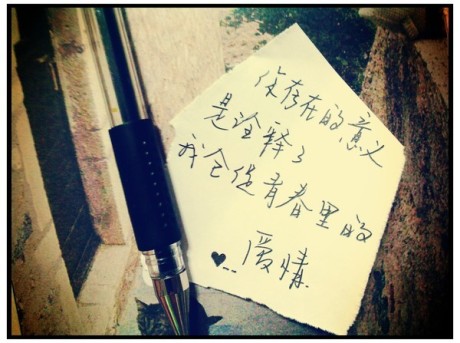 你存在的意义
是诠释了
我全进青春里的
爱情